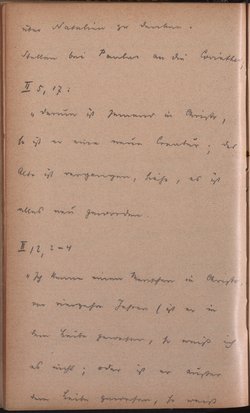 über Natalien zu denken.
Stellen bei Paulus an die Corinther
II 5, 17:
"Darum ist Jemand in Christo,
so ist er eine neue Creatur; das
Alte ist vergangen, siehe, es ist
alles neu geworden.
II, 12, 2-4
"Ich kenne einen Menschen in Christo
vor vierzehn Jahren (ist er in
dem Leibe gewesen, so weiß ich
es nicht; oder ist er außer
dem Leibe gewesen, so weiß